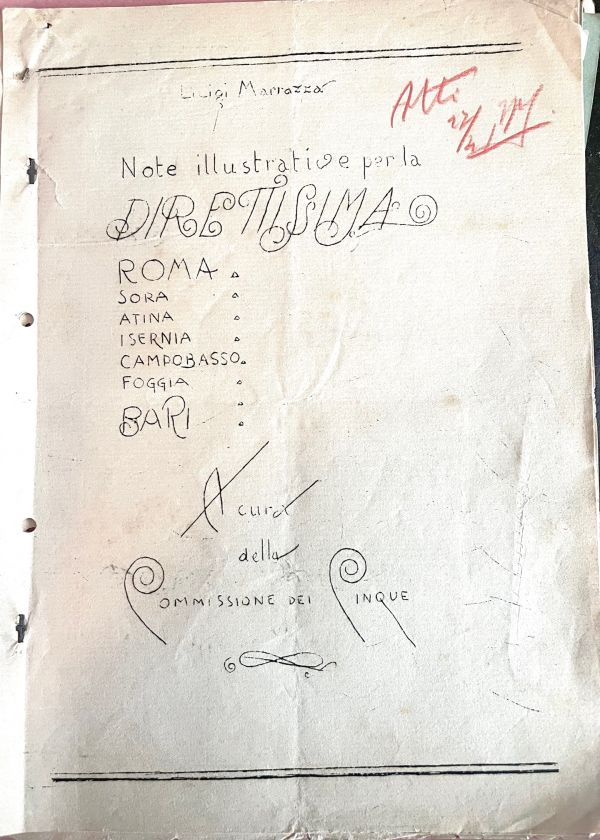 Luigi Marrazza
Atti
Note illustrative per la
DIRETTISIMA
ROMA
SORA
ATINA
ISERNIA
CAMPOBASSO
FOGGIA
BARI
A cura
della
COMMISSIONE DEI CINQUE